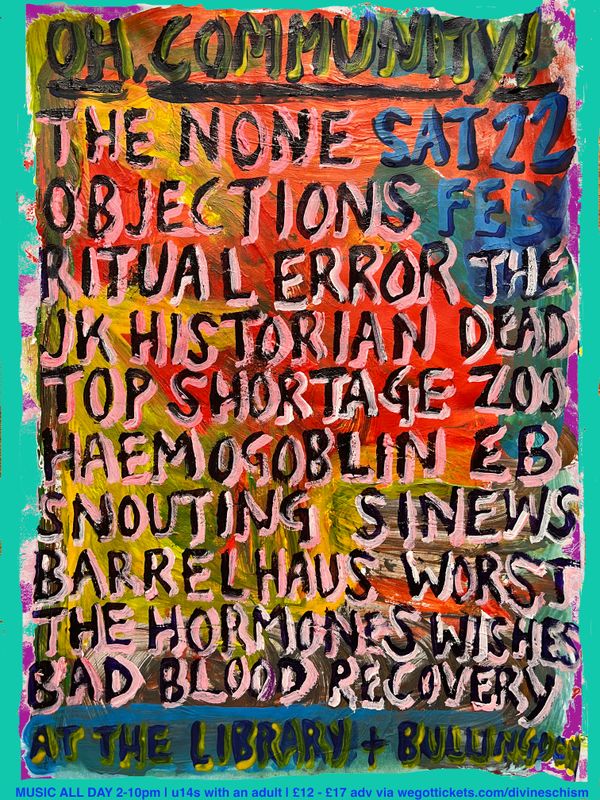 OH, COMMUNITY!
THE NONE SAT 22
OBJECTIONS FEB
RITUAL ERROR THE
UK HISTORIAN DEAD
TOP SHORTAGE ZOO
HAEMOGOBLIN EB
SNOUTING SINEWS
BARRELHAUS WORST
THE HORMONES WICHES
BAD BLOOD RECOVERY
AT THE LIBRARY + BULLINGDON
MUSIC ALL DAY 2-10pm | u14s with an adult | £12 - £17 adv via wegottickets.com/divineschism